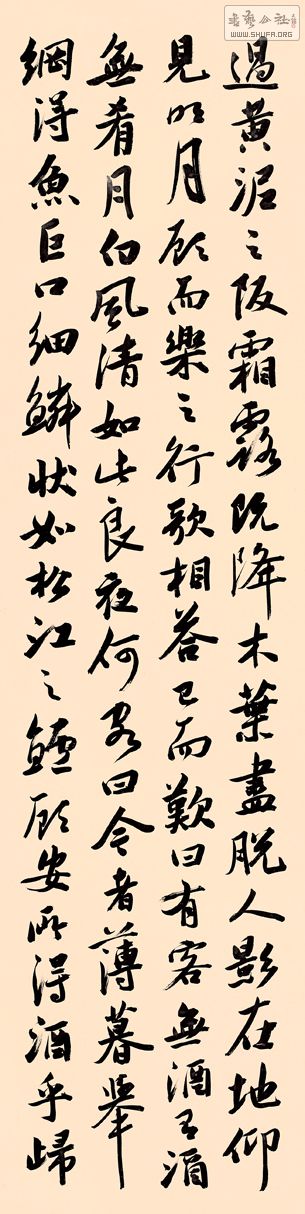 書藝公社
WWW.SHUFA.ORG
過黃泥之阪霜露既降木葉盡脫人影在地仰
見明月顧而樂之行歌相答已而歎曰有客無酒有酒
無肴月白風清如此良夜何客曰今者薄暮舉
網得魚巨口細鱗狀如松江之鱸顧安所得酒乎歸